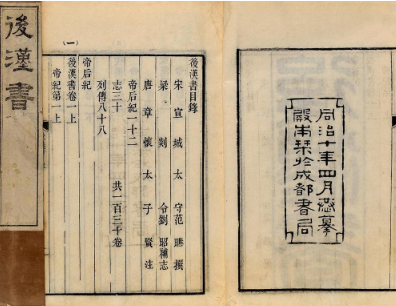 後漢書
同治十年四月恭摹
殿本栞於成都書局
後漢書目錄
宋宣城太守范曄撰
梁剡令劉昭補志
唐章懷太子賢注
帝后紀一十二
志三十 共一百三十卷
列傳八十八
帝后紀
後漢書卷一上
帝紀第一上
(一)